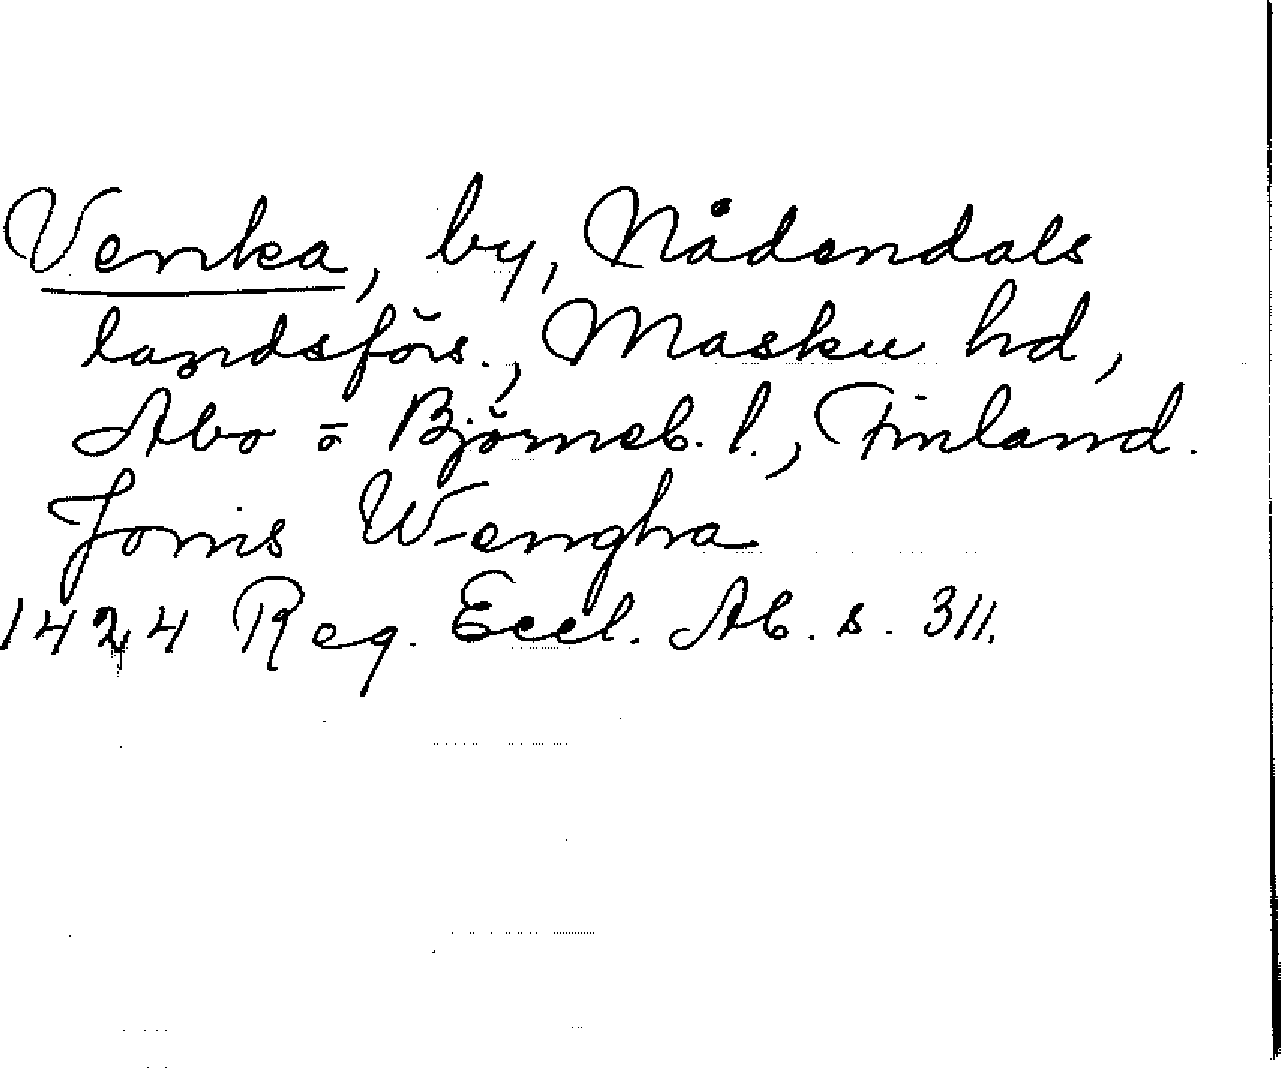 Venka, by, Nådendals
landsförs., Masku hd,
Abo ö Björneb. l., Finland.
Jonis Wengha
1424 Reg. Eccl. Ab. s. 311.